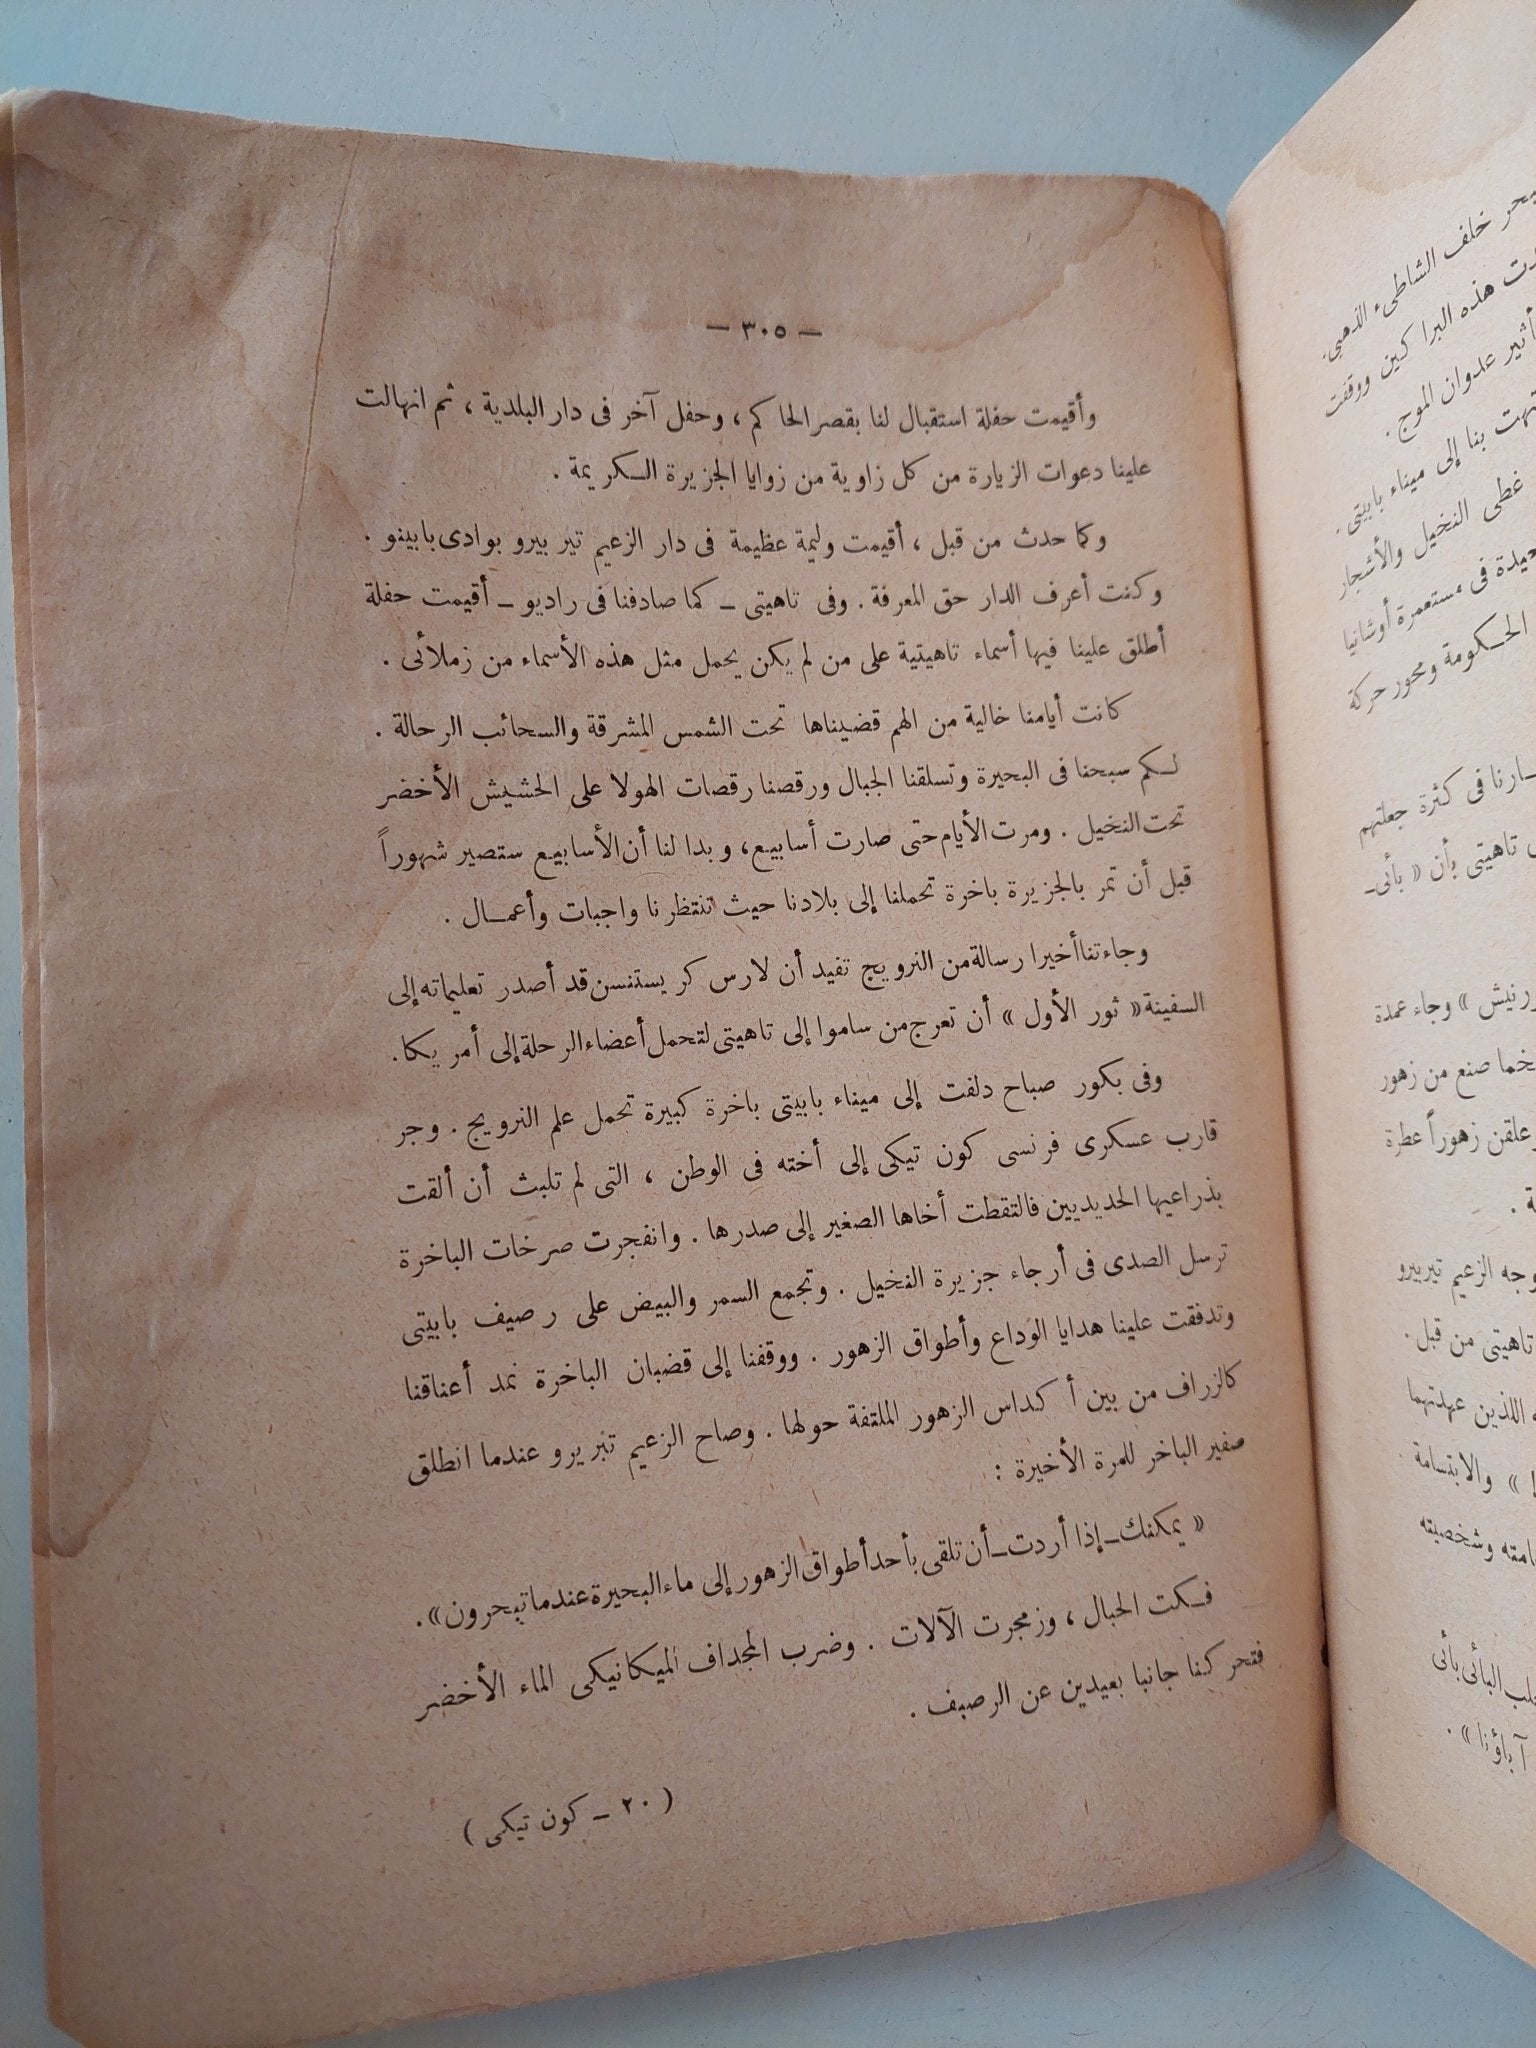 — ٣٠٥ —
وأقيمت حفلة استقبال لنا بقصر الحاكم ، وحفل آخر فى دار البلدية ، ثم انهالت
علينا دعوات الزيارة من كل زاوية من زوايا الجزيرة الكريمة .
وكما حدث من قبل ، أقيمت وليمة عظيمة فى دار الزعيم تير بيرو بوادى بابينو .
وكنت أعرف الدار حق المعرفة . وفى تاهيتى – كما صادفنا فى راديو – أقيمت حفلة
أطلق علينا فيها أسماء تاهيتية على من لم يكن يحمل مثل هذه الأسماء من زملائى .
كانت أيامنا خالية من الهم قضيناها تحت الشمس المشرقة والسحائب الرحالة .
لكم سبحنا فى البحيرة وتسلقنا الجبال ورقصنا رقصات الهولا على الحشيش الأخضر
تحت النخيل . ومرت الأيام حتى صارت أسابيع ، وبدا لنا أن الأسابيع ستصير شهوراً
قبل أن تمر بالجزيرة باخرة تحملنا إلى بلادنا حيث تنتظرنا واجبات وأعمال .
وجاءتنا أخيرا رسالة من النرويج تفيد أن لارس كريستنسن قد أصدر تعليماته إلى
السفينة « ثور الأول » أن تعرج من ساموا إلى تاهيتى لتحمل أعضاء الرحلة إلى أمريكا .
وفى بكور صباح دلفت إلى ميناء بابيتى باخرة كبيرة تحمل علم النرويج . وجر
قارب عسكرى فرنسى كون تيكى إلى أخته فى الوطن ، التى لم تلبث أن ألقت
بذراعيها الحديديين فالتقطت أخاها الصغير إلى صدرها . وانفجرت صرخات الباخرة
ترسل الصدى فى أرجاء جزيرة النخيل . وتجمع السمر والبيض على رصيف بابيتى
وتدفقت علينا هدايا الوداع وأطواق الزهور . ووقفنا إلى قضبان الباخرة نمد أعناقنا
كالزراف من بين أكداس الزهور الملتفة حولها . وصاح الزعيم تيريرو عندما انطلق
صفير الباخر للمرة الأخيرة :
« يمكنك – إذا أردت – أن تلقى بأحد أطواق الزهور إلى ماء البحيرة عندما تبحرون » .
فكت الحبال ، وزمجرت الآلات . وضرب المجداف الميكانيكى الماء الأخضر
فتحركنا جانبا بعيدين عن الرصيف .
( ٢٠ – كون تيكى )
خلف الشاطىء الذهبى .
هذه البراكين ووقفت
عدوان الموج .
بنا إلى ميناء بابيتى .
غطى النخيل والأشجار
فى مستعمرة أوشانيا
الحكومة ومحور حركة
فى كثرة جعلتهم
تاهيتى بأن « بأى-
» وجاء عمدة
صنع من زهور
وعلقن زهوراً عطرة
الزعيم تيربيرو
تاهيتى من قبل .
اللذين عهدتهما
» والابتسامة
وشخصيته
آباؤنا » .